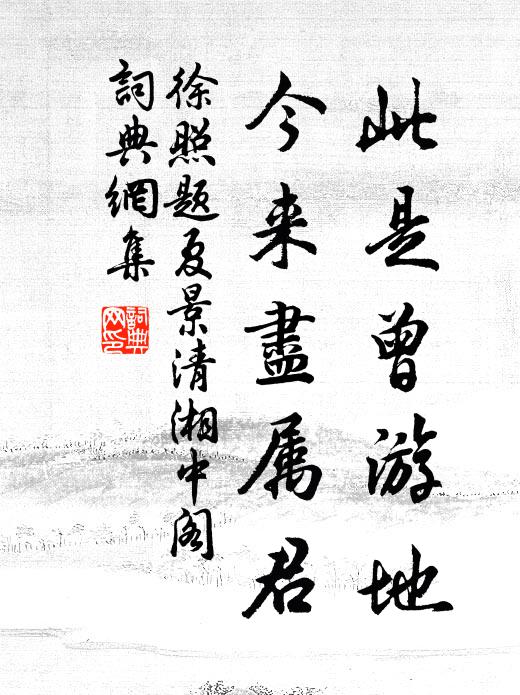 此是曾游地
今来盡属君
徐照题夏景清湘中阁
詞典網集
詞典网印